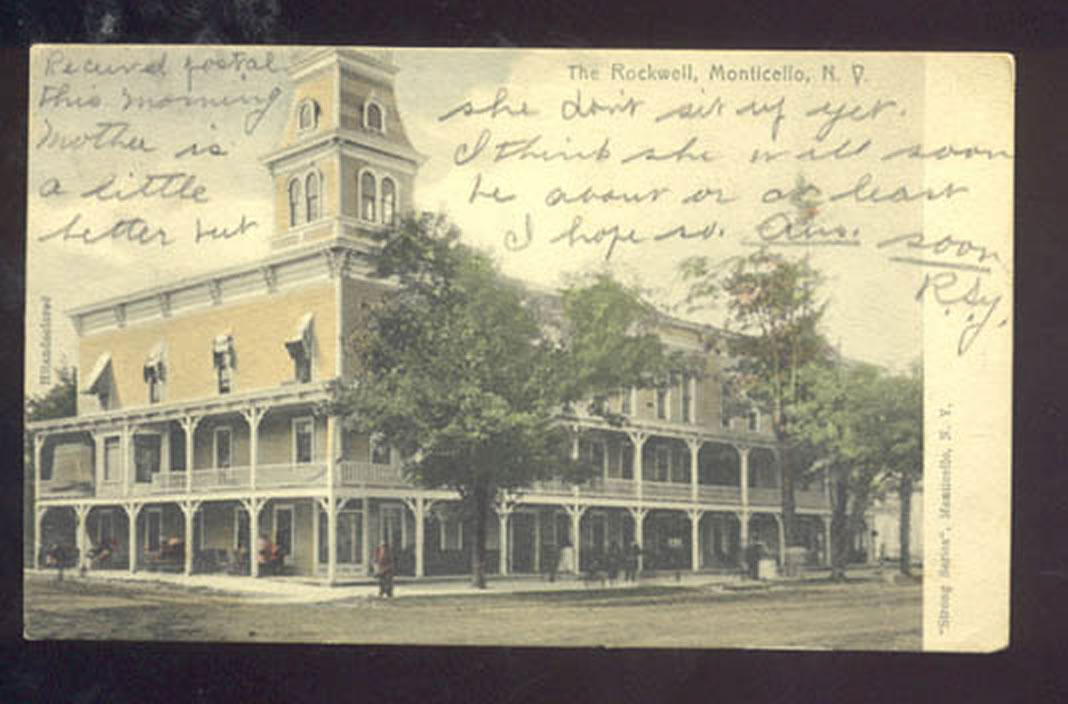 The Rockwell, Monticello, N. Y.
Received postal
this morning
Mother is
a little
better but
she don't sit up yet.
I think she will soon
be about or at least
I hope so. Ans. soon
Handcolored
"Strong Series", Monticello, N. Y.